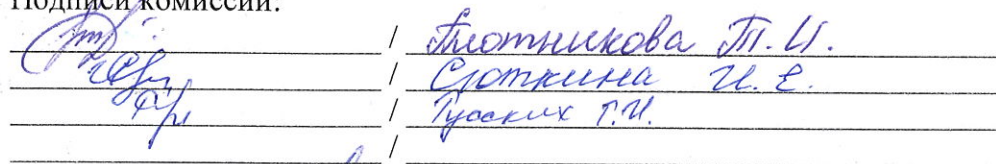 Подписи комиссии:
/ Плотникова Т.И.
/ Сюткина И.Е.
/ Г.И.
/